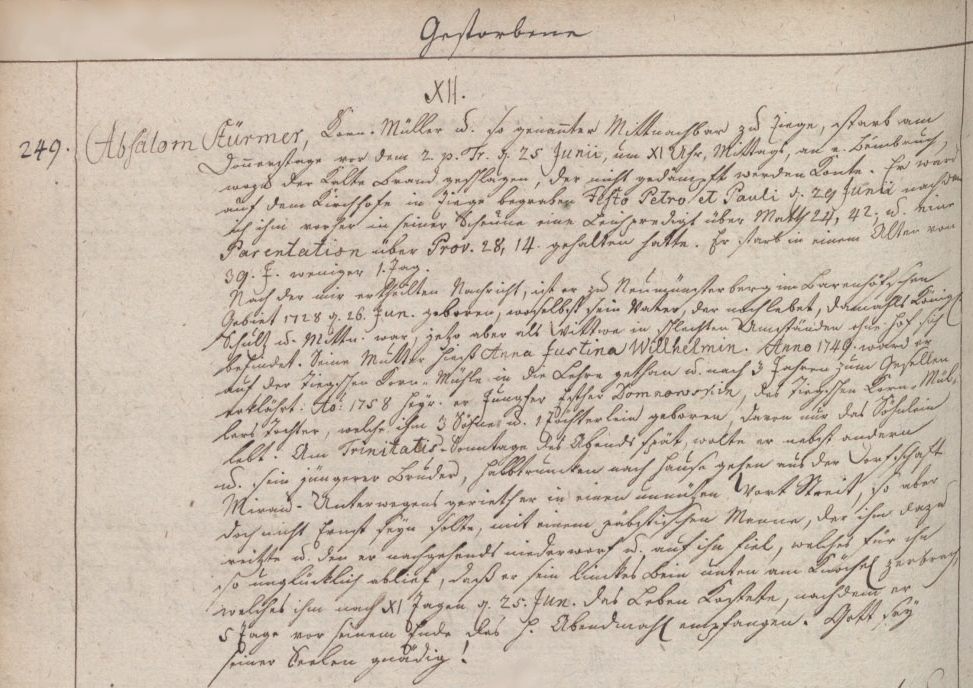 Gestorbene
XII.
249. Absalom Stürmer, Korn-Müller u. so genannter Mittnachbar zu Tiege, starb am
Donnerstage vor dem 2. p. Tr. d. 25 Junii, um XI Uhr, Mittags, an e. Beinbruch,
wozu der Kalte Brand geschlagen, der nicht gedämpft werden konte. Er ward
auf dem Kirchhofe in Tiege begraben Festo Petro et Pauli d. 29 Junii nachdem
ich ihm vorher in seiner Scheune eine Leichpredigt über Matth 24, 42. u. eine
Parentation über Prov. 28, 14. gehalten hatte. Er starb in einem Alter von
39. J. weniger 1. Tag.
Nach der mir ertheilten Nachricht, ist er zu Neumünsterberg im Barenhöfschen
Gebiet 1728 d. 26. Jun. geboren, woselbst sein Vater, der noch lebet, damahls Königl.
Schultz u. Mittn. war, jetzo aber als Wittwer in schlechten Umständen ohne Hof sich
befindet. Seine Mutter hiess Anna Justina Willhelmin. Anno 1749. ward er
auf der Tiegschen Korn-Mühle in die Lehre gethan u. nach 3 Jahren zum Gesellen
erklährt. Ao: 1758 heyr. er Jungfer Esther Domnowskin, des Tiegschen Korn-Mül-
lers Tochter, welche ihm 3 Söhne u. 1 Töchterlein geboren, davon nur das Söhnlein
lebt. Am Trinitatis-Sonntage des Abends spät, wolte er nebst andern
u. sein jüngerer Bruder, halbtruncken nach Hause gehen aus der Dorfschaft
Mirau- Unterwegens geriethe er in einen unnützen Wort Streit, so aber
doch nicht Ernst seyn solte, mit einem päbstischen Manne, der ihn dazu
reitzte u. den er nachgehends niederworf u. auf ihn fiel, welches für ihn
so unglücklich ablief, daß er sein linckes Bein unten am Knöchel zerbrach,
welches ihm nach XI Tagen d. 25. Jun. das Leben kostete, nachdem er
5 Tage vor seinem Ende das H. Abendmahl empfangen. Gott sey
seiner Seelen gnädig!